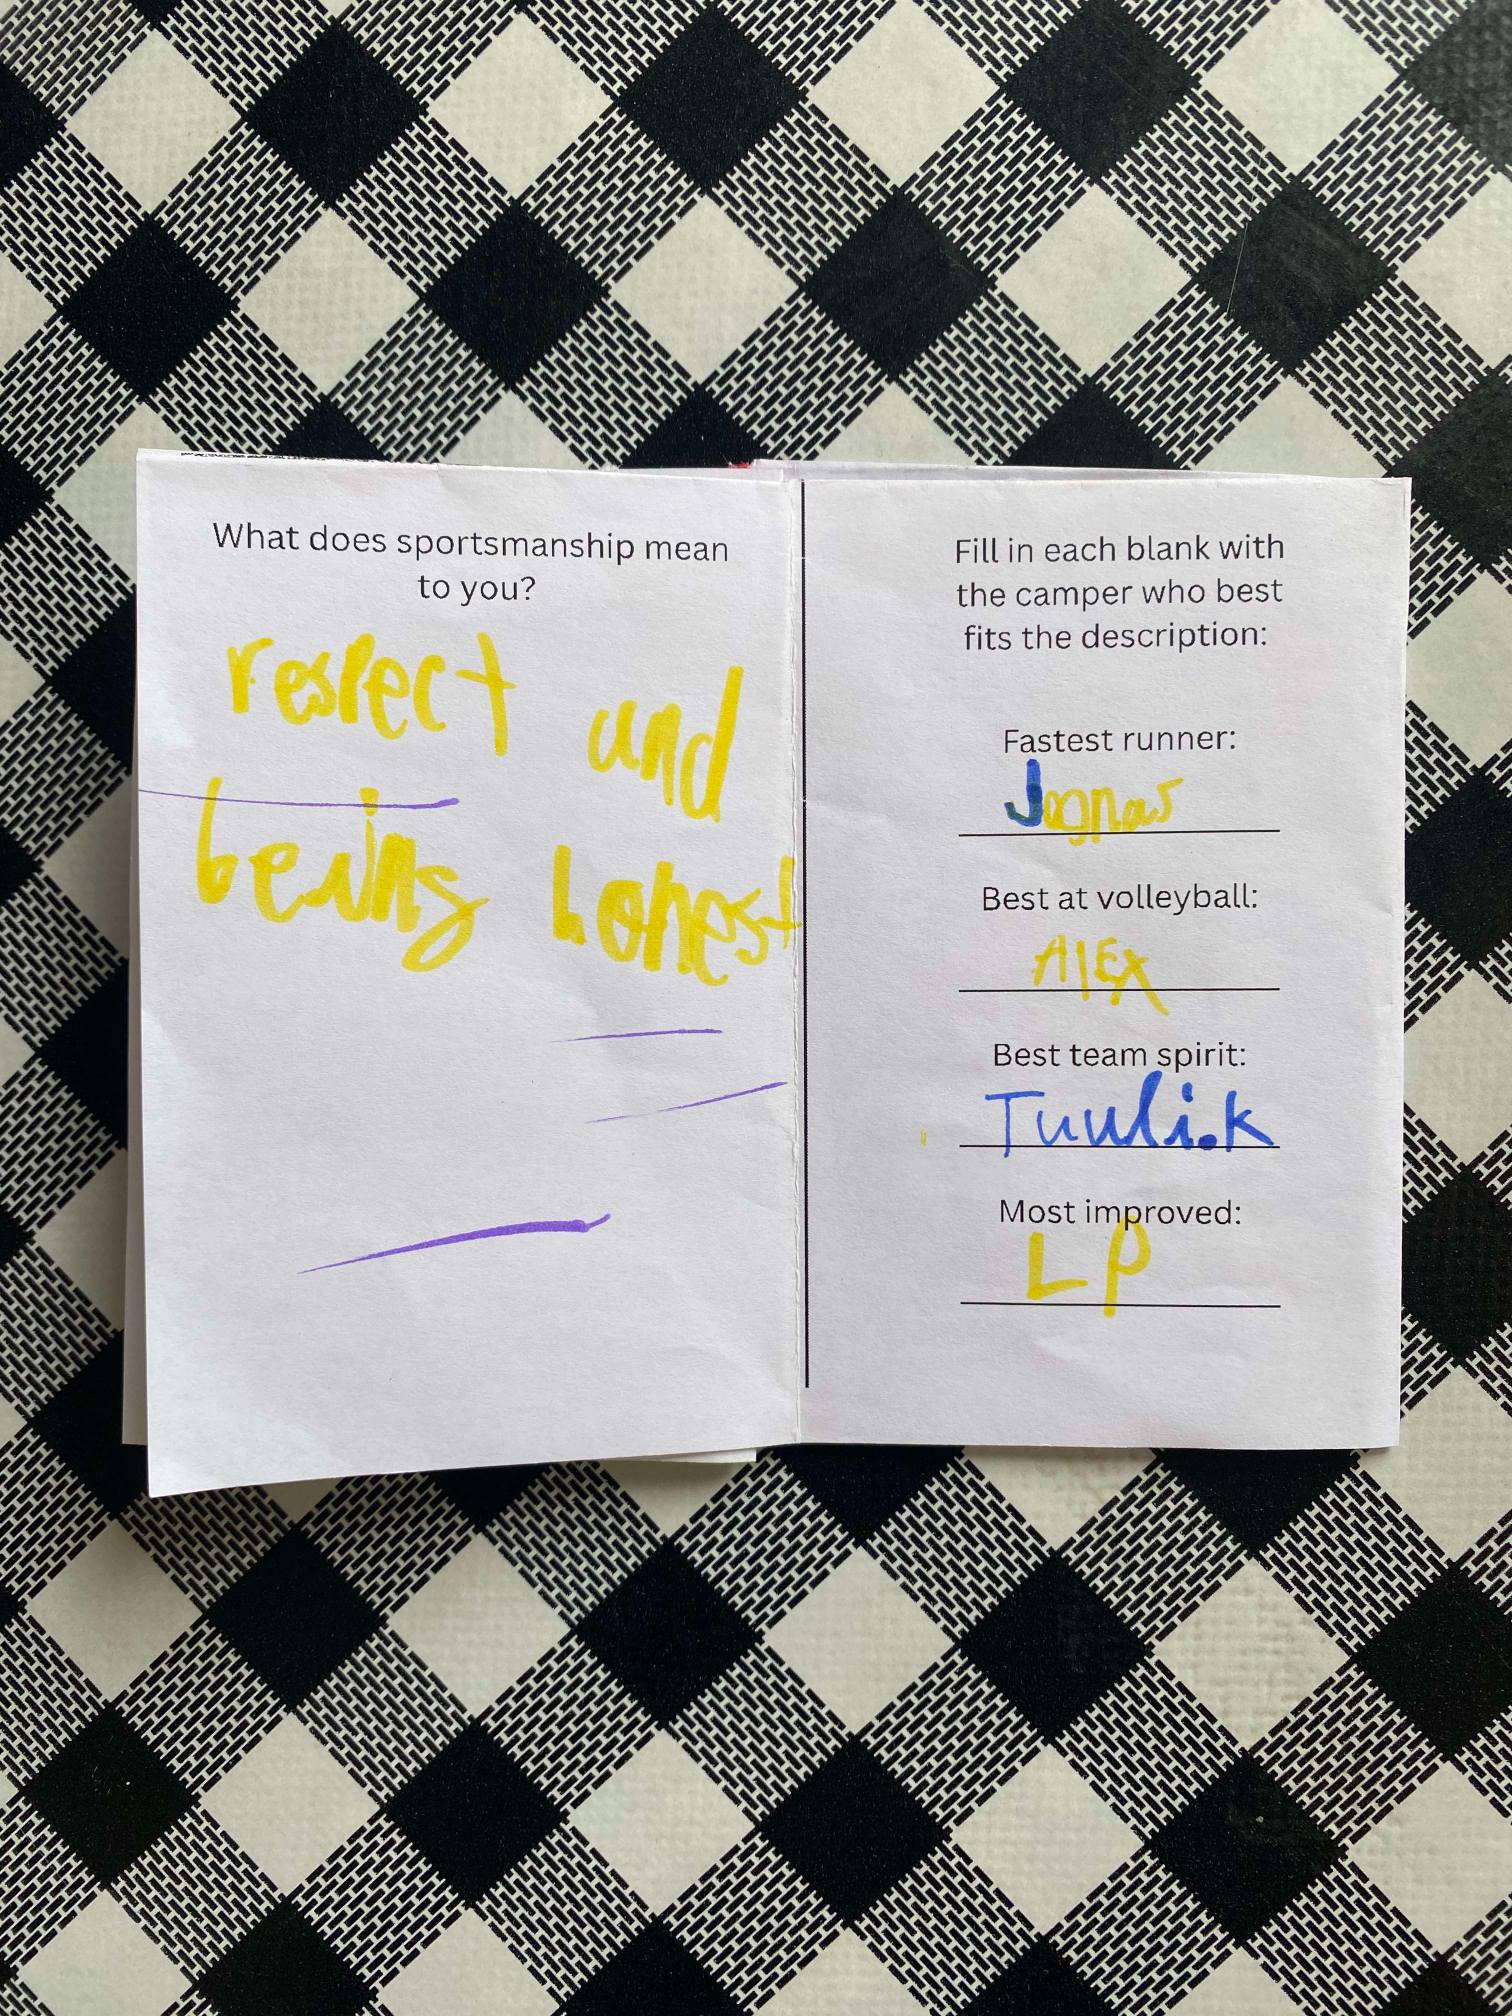 What does sportsmanship mean
to you?
respect and
being honest
Fill in each blank with
the camper who best
fits the description:
Fastest runner:
Best at volleyball:
AlEx
Best team spirit:
Tuuli.k
Most improved:
LP